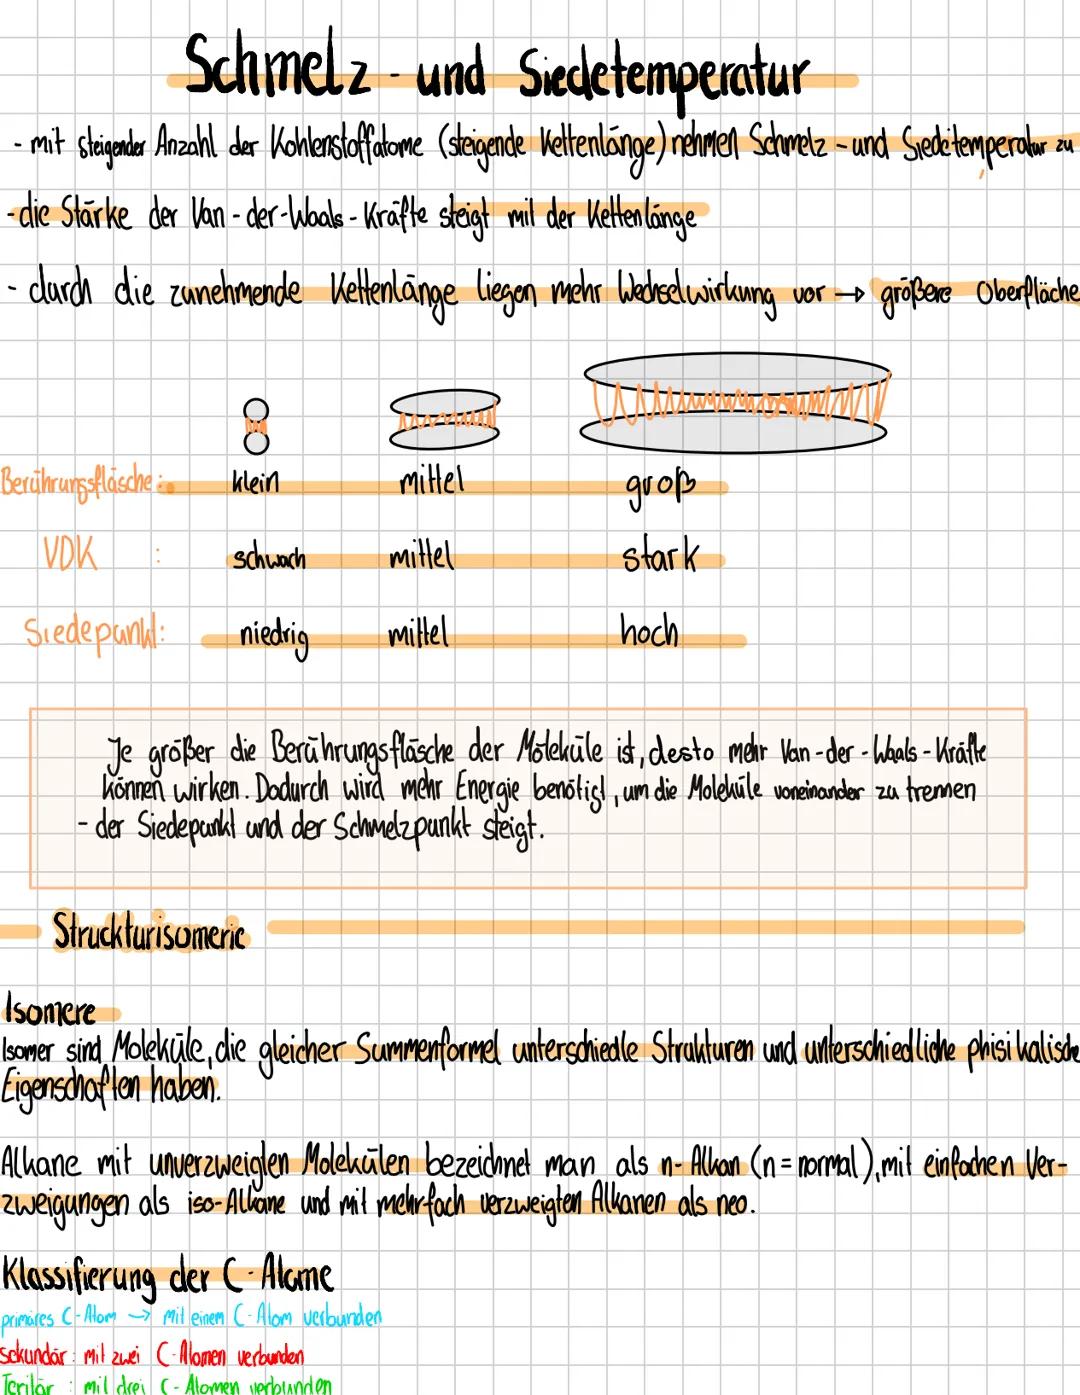 Schmelz - und Siedetemperatur
- mit steigender Anzahl der Kohlenstoffatome (steigende Kettenlänge) nehmen Schmelz - und Siedetemperatur zu
- die Stärke der Van - der - Waals - Kräfte steigt mit der Kettenlänge
- durch die zunehmende Kettenlänge liegen mehr Wechselwirkung vor → größere Oberfläche
Berührungsfläsche: klein mittel groß
VDK : schwach mittel stark
Siedepunkt: niedrig mittel hoch
Je größer die Berührungsfläsche der Moleküle ist, desto mehr Van - der - Waals - Kräfte
können wirken. Dadurch wird mehr Energie benötigt, um die Moleküle voneinander zu trennen
- der Siedepunkt und der Schmelzpunkt steigt.
Struckturisomerie
Isomere
Isomer sind Moleküle, die gleicher Summenformel unterschiedle Strukturen und unterschiedliche phisikalische
Eigenschaften haben.
Alkane mit unverzweigten Molekülen bezeichnet man als n- Alkan (n = normal), mit einfachen Ver-
zweigungen als iso-Alkane und mit mehrfach verzweigten Alkanen als neo.
Klassifierung der C - Atome
primäres C - Atom → mit einem C - Atom verbunden
sekundär : mit zwei C - Atomen verbunden
Teritär : mit drei C - Atomen verbunden